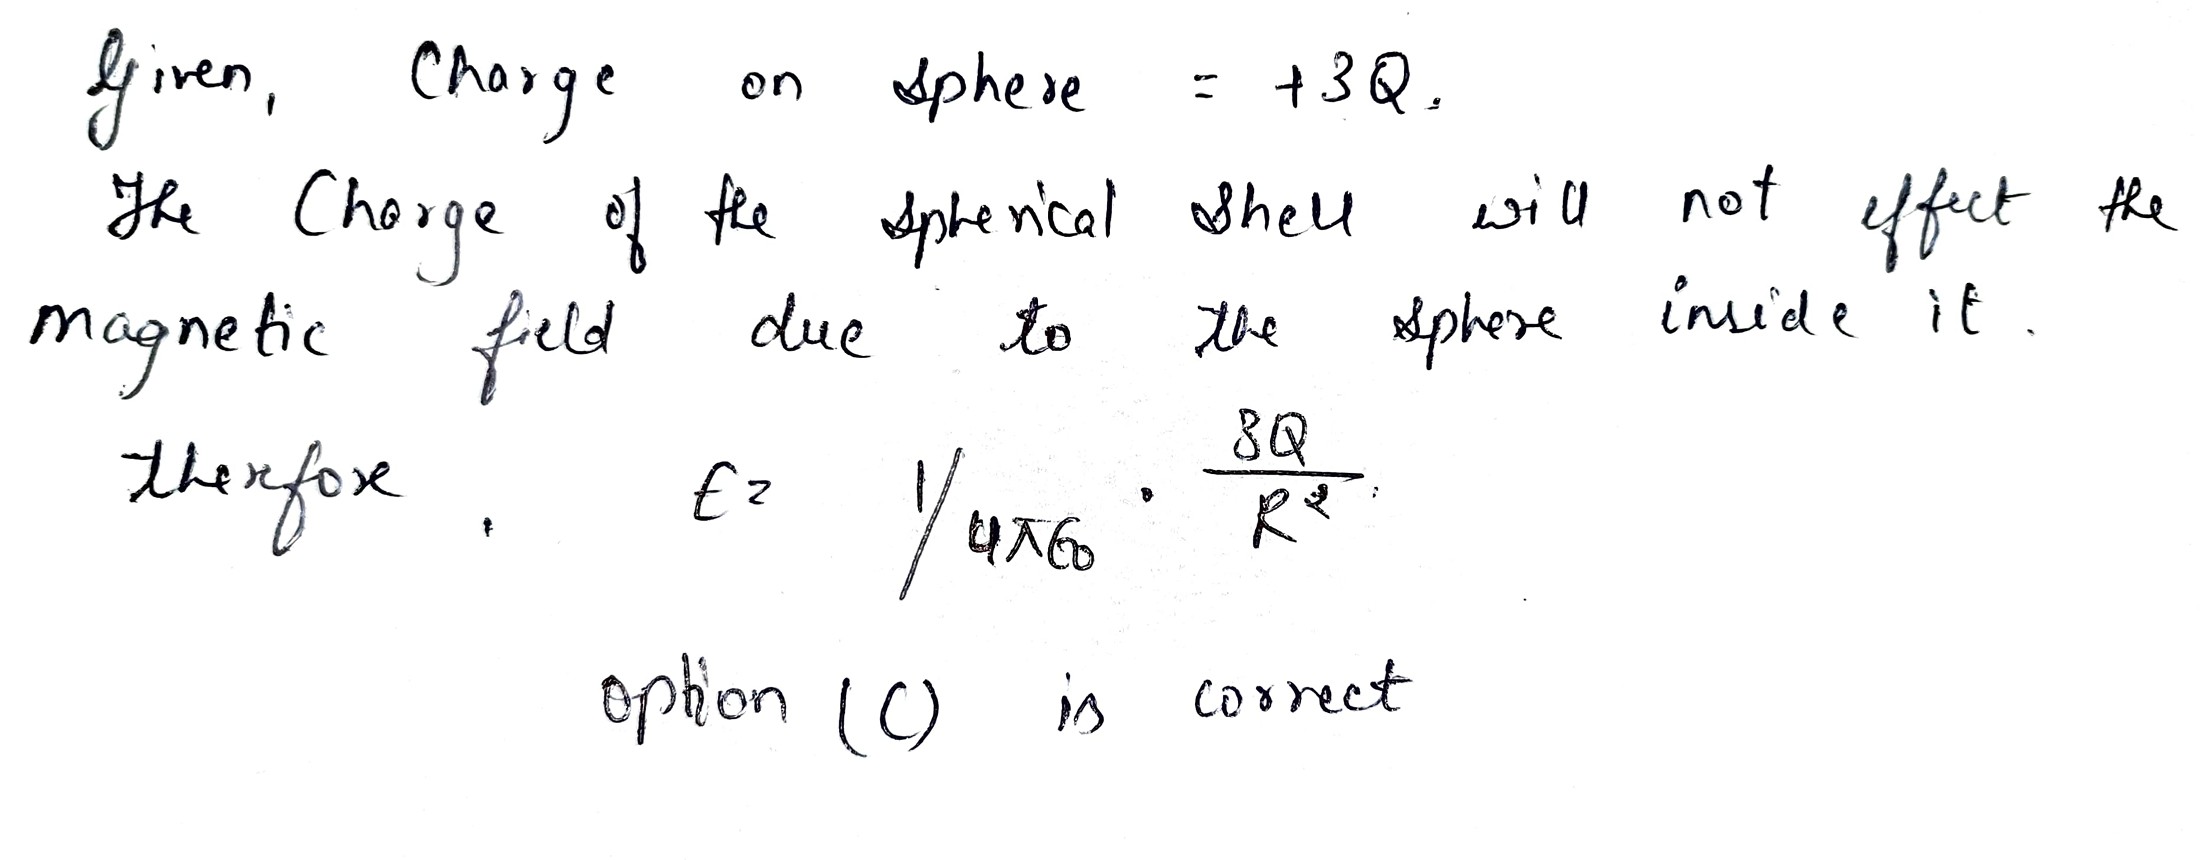 Given, Charge on sphere = +3Q.
The Charge of the spherical shell will not effect the
magnetic field due to the sphere inside it.
therefore, E = 1/4πε₀ · 3Q/R²
option (C) is correct